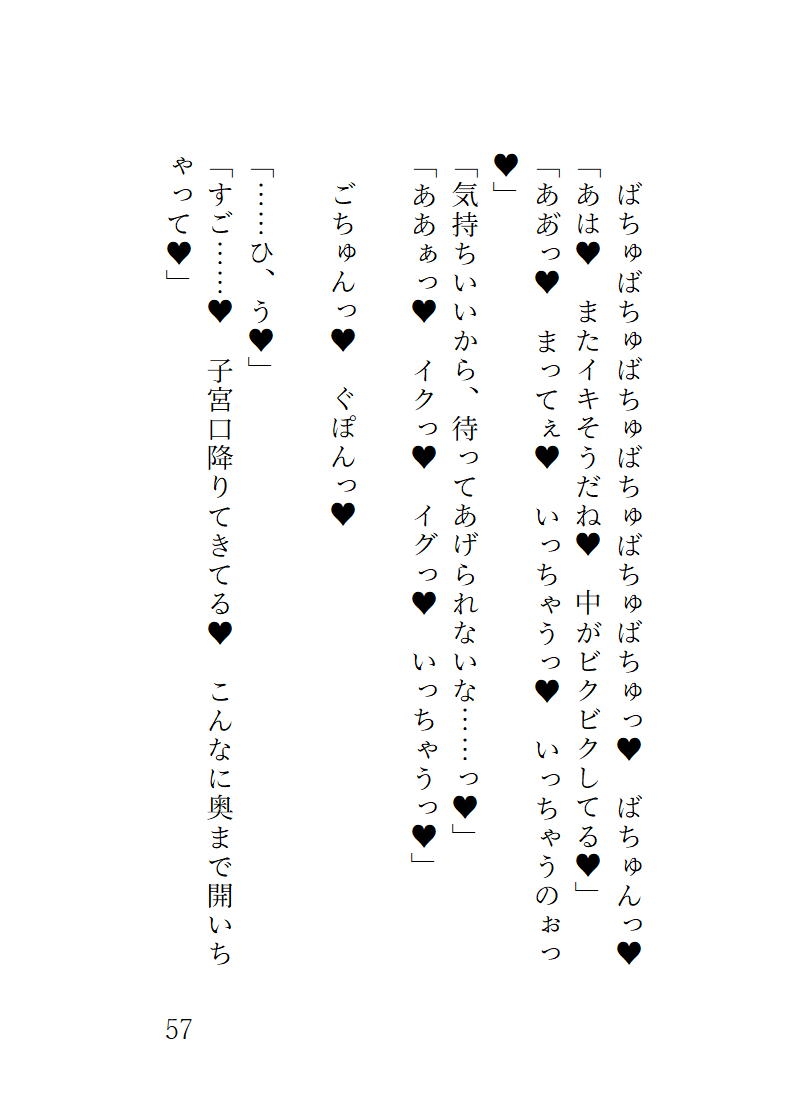 ばちゅばちゅばちゅばちゅばちゅばちゅっ♥　ばちゅんっ♥
「あは♥　またイキそうだね♥　中がビクビクしてる♥」
「ああ゙っ♥　まってぇ♥　いっちゃうっ♥　いっちゃうのぉっ
♥」
「気持ちいいから、待ってあげられないな……っ♥」
「ああぁっ♥　イクっ♥　イグっ♥　いっちゃうっ♥」
　ごちゅんっ♥　ぐぽんっ♥
「……ひ、う♥」
「すご……♥　子宮口降りてきてる♥　こんなに奥まで開いち
ゃって♥」
57